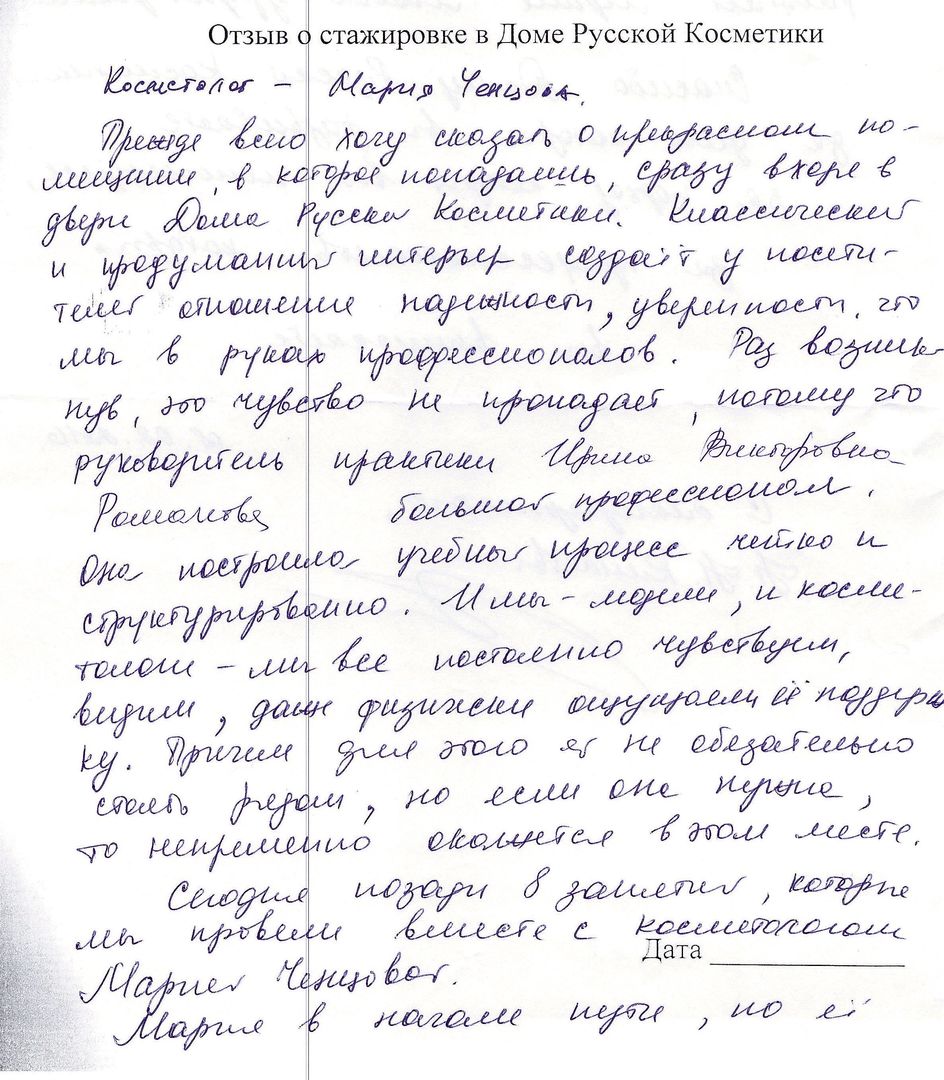 Отзыв о стажировке в Доме Русской Косметики
Косметолог – Мария Ченцова.
Прежде всего хочу сказать о прекрасном по-
мещении, в которое попадаешь, сразу входя в
двери Дома Русской Косметики. Классический
и продуманный интерьер создаёт у посети-
телей отношение надежности, уверенности, что
мы в руках профессионалов. Раз возник-
нув, это чувство не пропадает, потому что
руководитель практики Ирина Викторовна
большой профессионал.
Она построила учебный процесс четко и
структурированно. И мы – модели, и косме-
тологи – мы все постоянно чувствуем,
видим, даже физически ощущаем её поддерж
ку. Причем для этого ей не обязательно
стоять рядом, но если она нужна,
то непременно окажется в этом месте.
Сегодня позади 8 занятий, которые
мы провели вместе с косметологом
Дата
Марией Ченцовой.
Мария в начале пути, но её